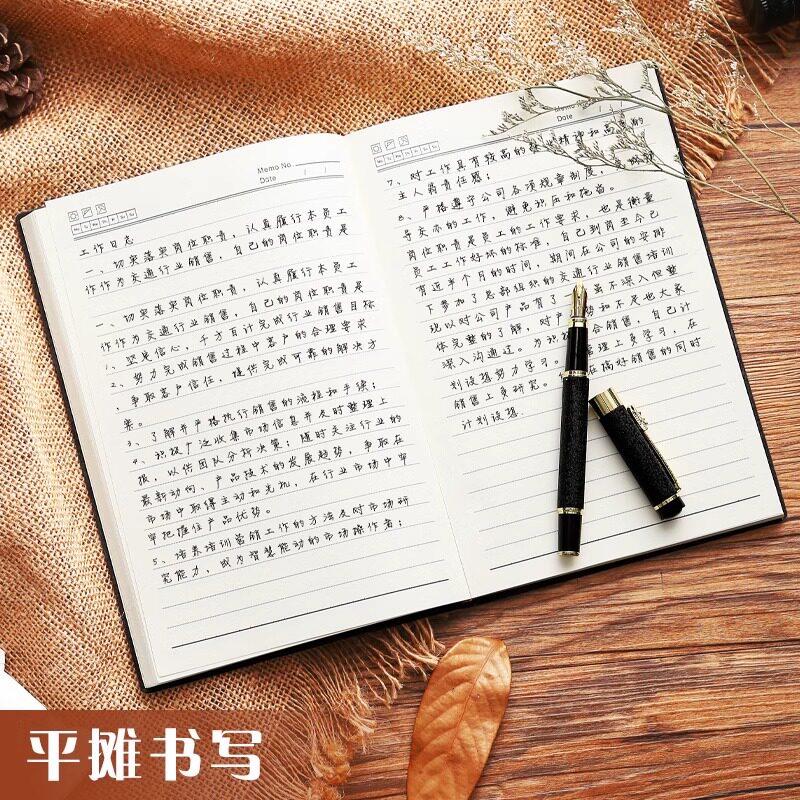 Memo No.
Date / /
Mo Tu We Th Fr Sa Su
工作日志
一、切实落实岗位职责，认真履行本员工
作作为交通行业销售，自己的岗位职责是
一、切实落实岗位职责，认真履行本员工
作作为交通行业销售，自己的岗位职责是
1、坚定信心，千方百计完成行业销售目标
2、努力完成销售过程中客户的合理要求
，争取客户信任，提供完成可靠的解决方
案。
3、了解并严格执行销售的流程和手续；
4、积极广泛收集市场信息并及时整理上
报，以供团队分析决策；随时关注行业的
最新动向、产品技术的发展趋势，争取在
市场中取得主动和先机，在行业市场中牢
牢把握住产品优势。
5、培养培训营销工作的方法及对市场研
究能力，成为智慧能动的市场操作者；
Memo No.
Date / /
Mo Tu We Th Fr Sa Su
7、对工作具有较高的 精神和高 的
主人翁责任感；
8、严格遵守公司各项规章制度，
导交办的工作，避免积压和拖沓。
岗位职责是员工的工作要求，也是衡量
员工工作好坏的标准，自己到岗至今已
有近半个月的时间，期间在公司的安排
下参加了总部组织的交通行业销售培训
现以对公司产品有了 虽不深入但整
体完整的了解，对产 势和不足也大家
深入沟通过。为积 合销售，自己计
划设想努力学习。 管理上多学习，在
销售上多研究。 在搞好销售的同时
计划设想.
平摊书写